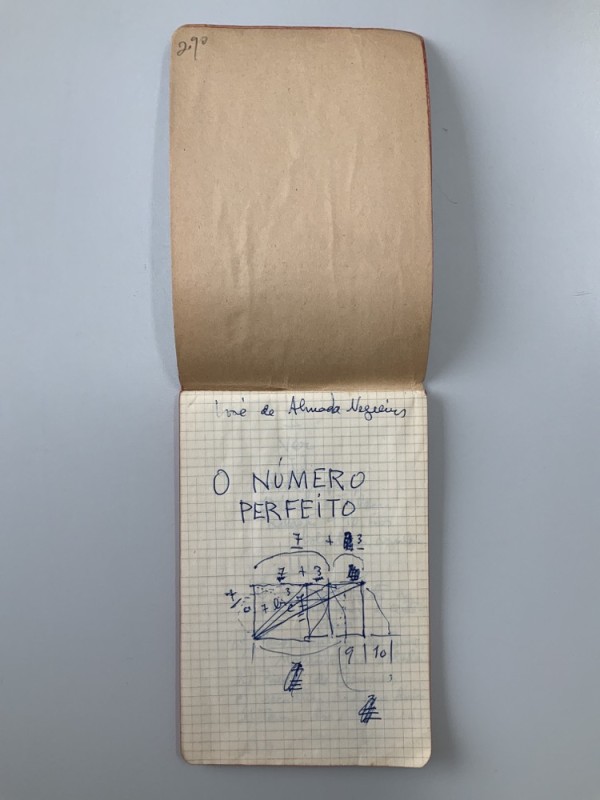 2.90
José de Almada Negreiros
O NÚMERO
PERFEITO
7 + 3
7 + 3
3
7
9 10